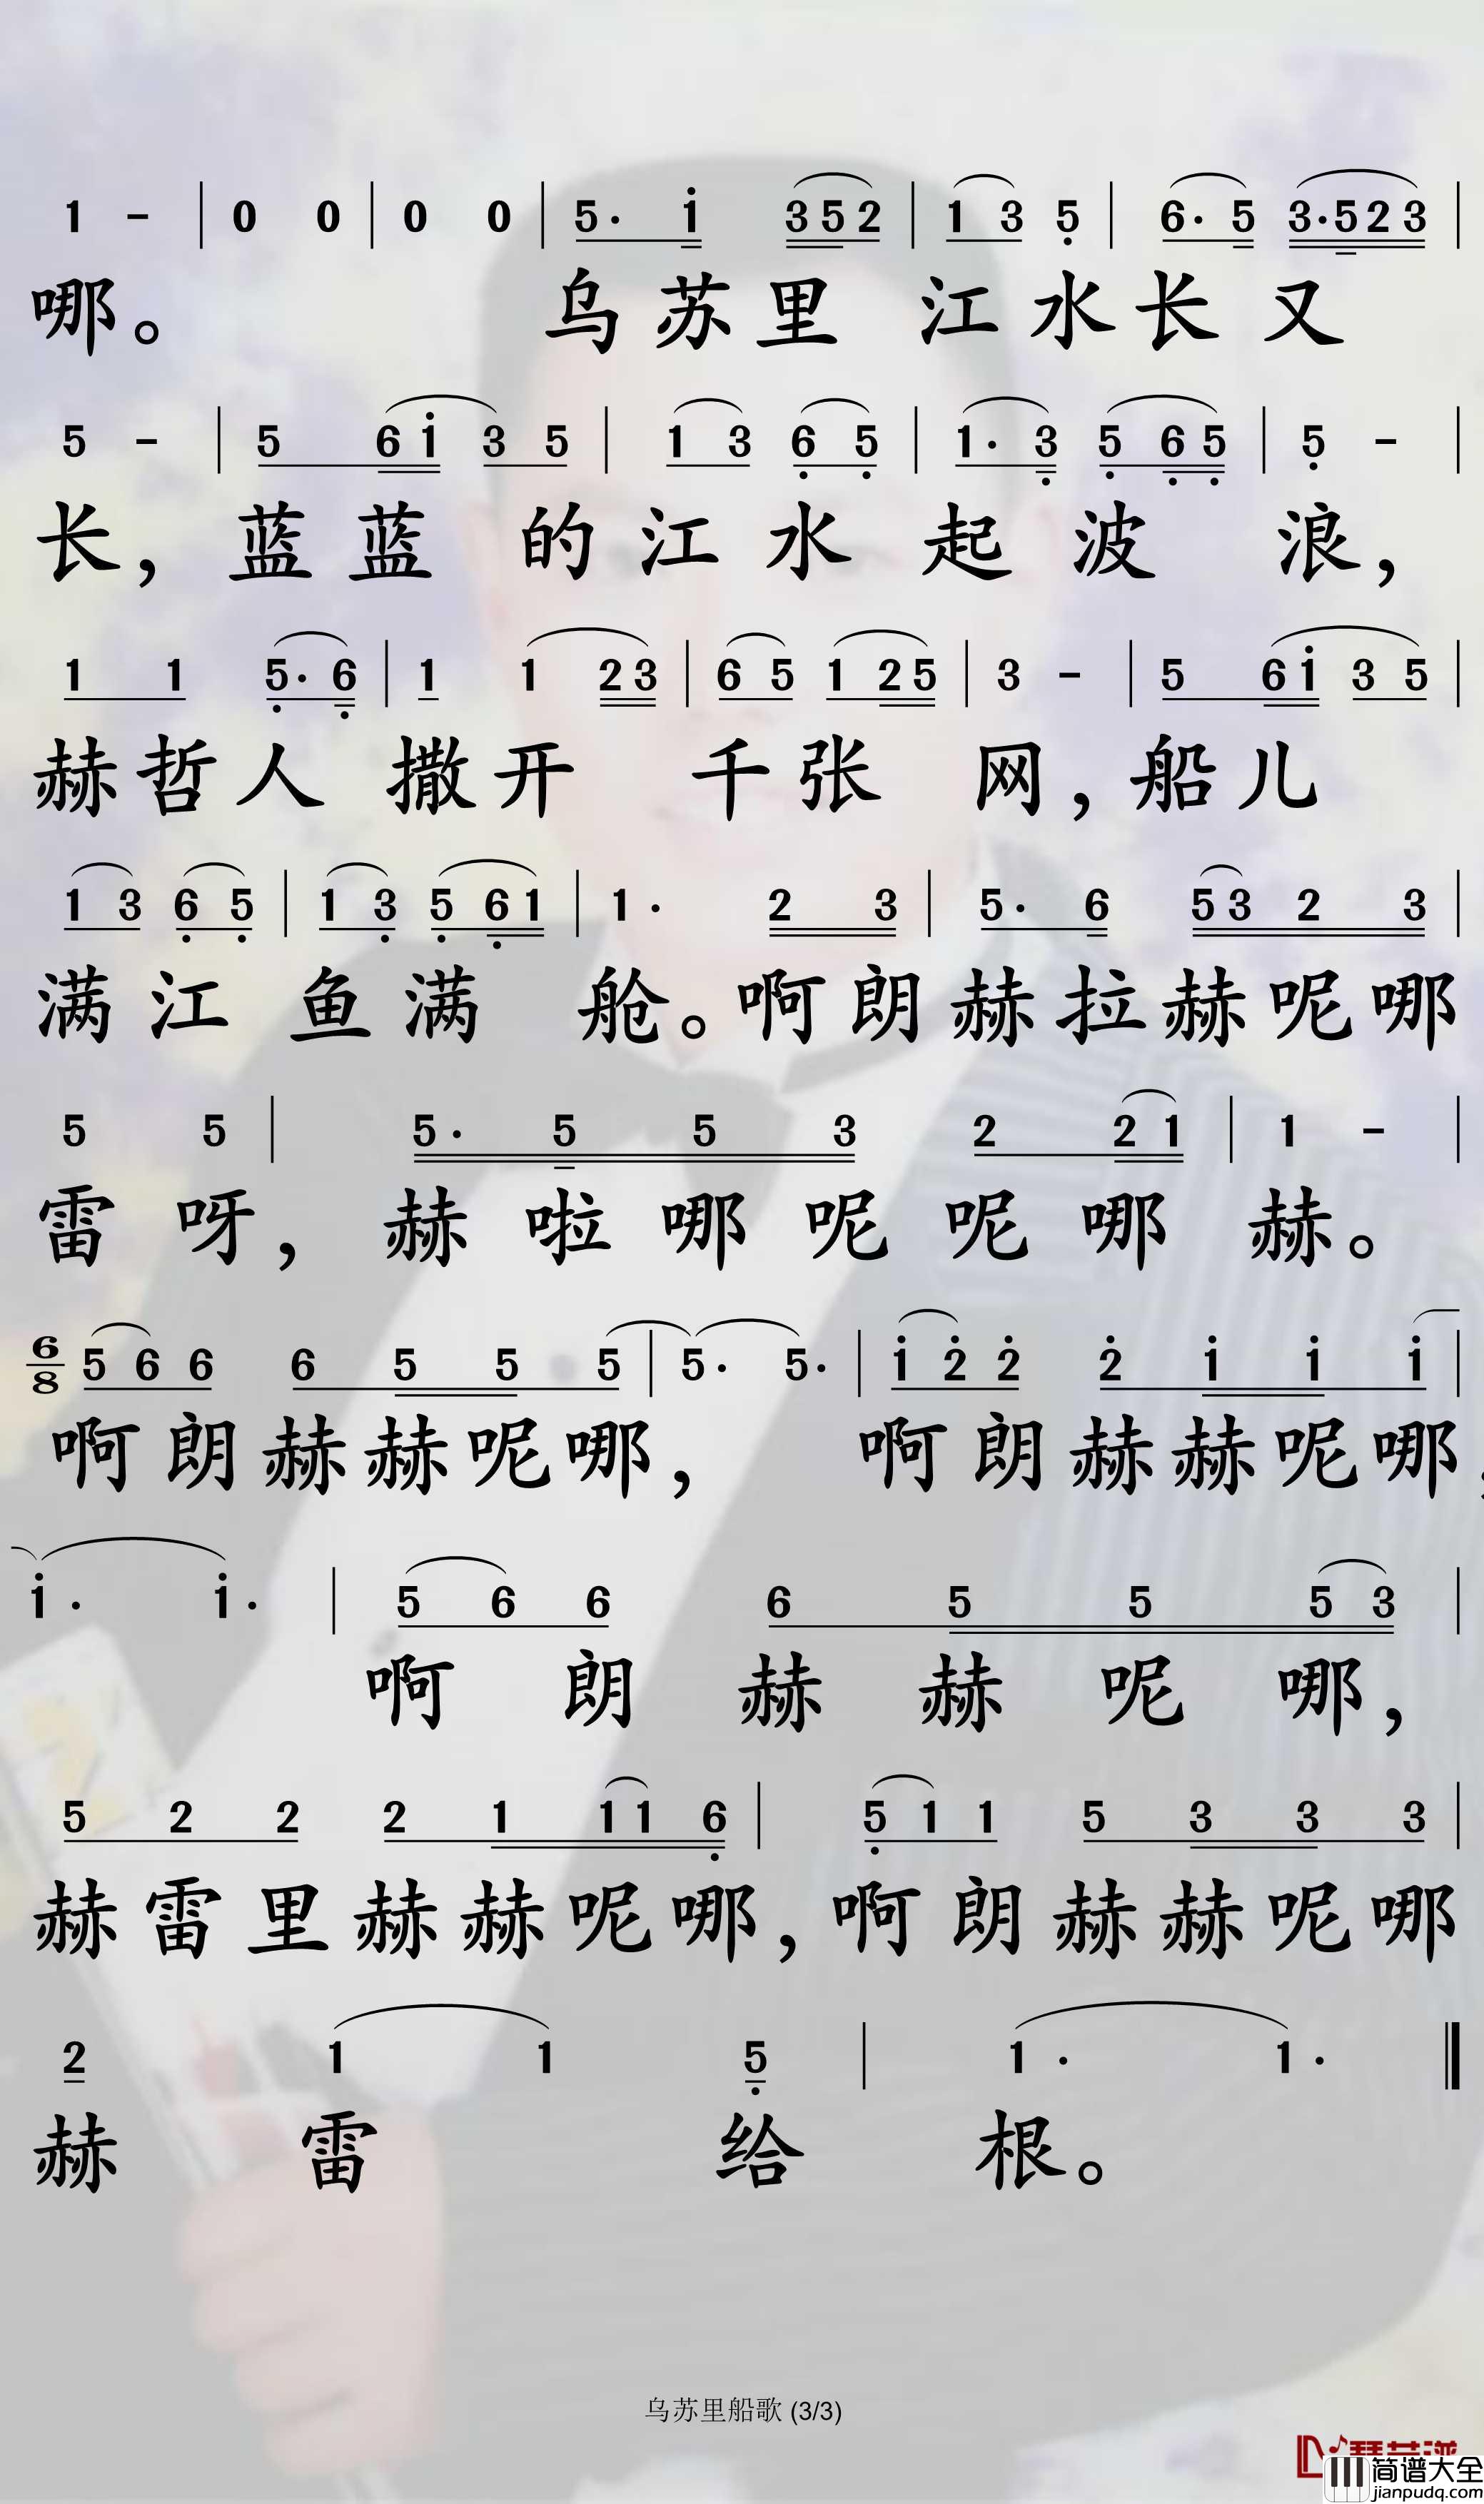 1 - | 0 0 | 0 0 | 5· i 3 5 2 | 1 3 5 | 6· 5 3·5 2 3 |
哪。 乌苏里 江水长又
5 - | 5 6 i 3 5 | 1 3 6 5 | 1· 3 5 6 5 | 5 - |
长，蓝蓝 的江水 起波 浪，
1 1 5· 6 | 1 1 2 3 | 6 5 1 2 5 | 3 - | 5 6 i 3 5 |
赫哲人 撒开 千张 网，船儿
1 3 6 5 | 1 3 5 6 1 | 1· 2 3 | 5· 6 5 3 2 3 |
满江 鱼满 舱。啊朗赫拉赫呢哪
5 5 | 5· 5 5 3 2 2 1 | 1 - |
雷呀，赫啦哪呢呢哪 赫。
6/8 5 6 6 6 5 5 5 | 5· 5· | i 2 2 2 i i i |
啊朗赫赫呢哪， 啊朗赫赫呢哪，
i· i· | 5 6 6 6 5 5 5 3 |
啊朗赫赫呢哪，
5 2 2 2 1 1 1 6 | 5 1 1 5 3 3 3 |
赫雷里赫赫呢哪，啊朗赫赫呢哪
2 1 1 5 | 1· 1· ‖
赫雷 给根。
乌苏里船歌 (3/3)
简谱大全
jianpudq.com